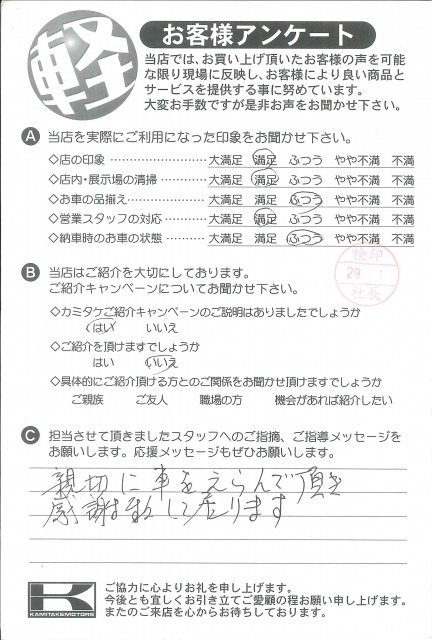 軽
お客様アンケート
当店では、お買い上げ頂いたお客様の声を可能
な限り現場に反映し、お客様により良い商品と
サービスを提供する事に努めています。
大変お手数ですが是非お声をお聞かせ下さい。
A 当店を実際にご利用になった印象をお聞かせ下さい。
◇店の印象 大満足 満足 ふつう やや不満 不満
◇店内・展示場の清掃 大満足 満足 ふつう やや不満 不満
◇お車の品揃え 大満足 満足 ふつう やや不満 不満
◇営業スタッフの対応 大満足 満足 ふつう やや不満 不満
◇納車時のお車の状態 大満足 満足 ふつう やや不満 不満
検印
29
社長
B 当店はご紹介を大切にしております。
ご紹介キャンペーンについてお聞かせ下さい。
◇カミタケご紹介キャンペーンのご説明はありましたでしょうか
はい いいえ
◇ご紹介を頂けますでしょうか
はい いいえ
◇具体的にご紹介頂ける方とのご関係をお聞かせ頂けますでしょうか
ご親族 ご友人 職場の方 機会があれば紹介したい
C 担当させて頂きましたスタッフへのご指摘、ご指導メッセージを
お願いします。応援メッセージもぜひお願いします。
親切に車をえらんで頂き
感謝致して居ります
K
KAMITAKEMOTORS
ご協力に心よりお礼を申し上げます。
今後とも宜しくお引き立てご愛顧の程お願い申し上げます。
またのご来店を心からお待ちしております。